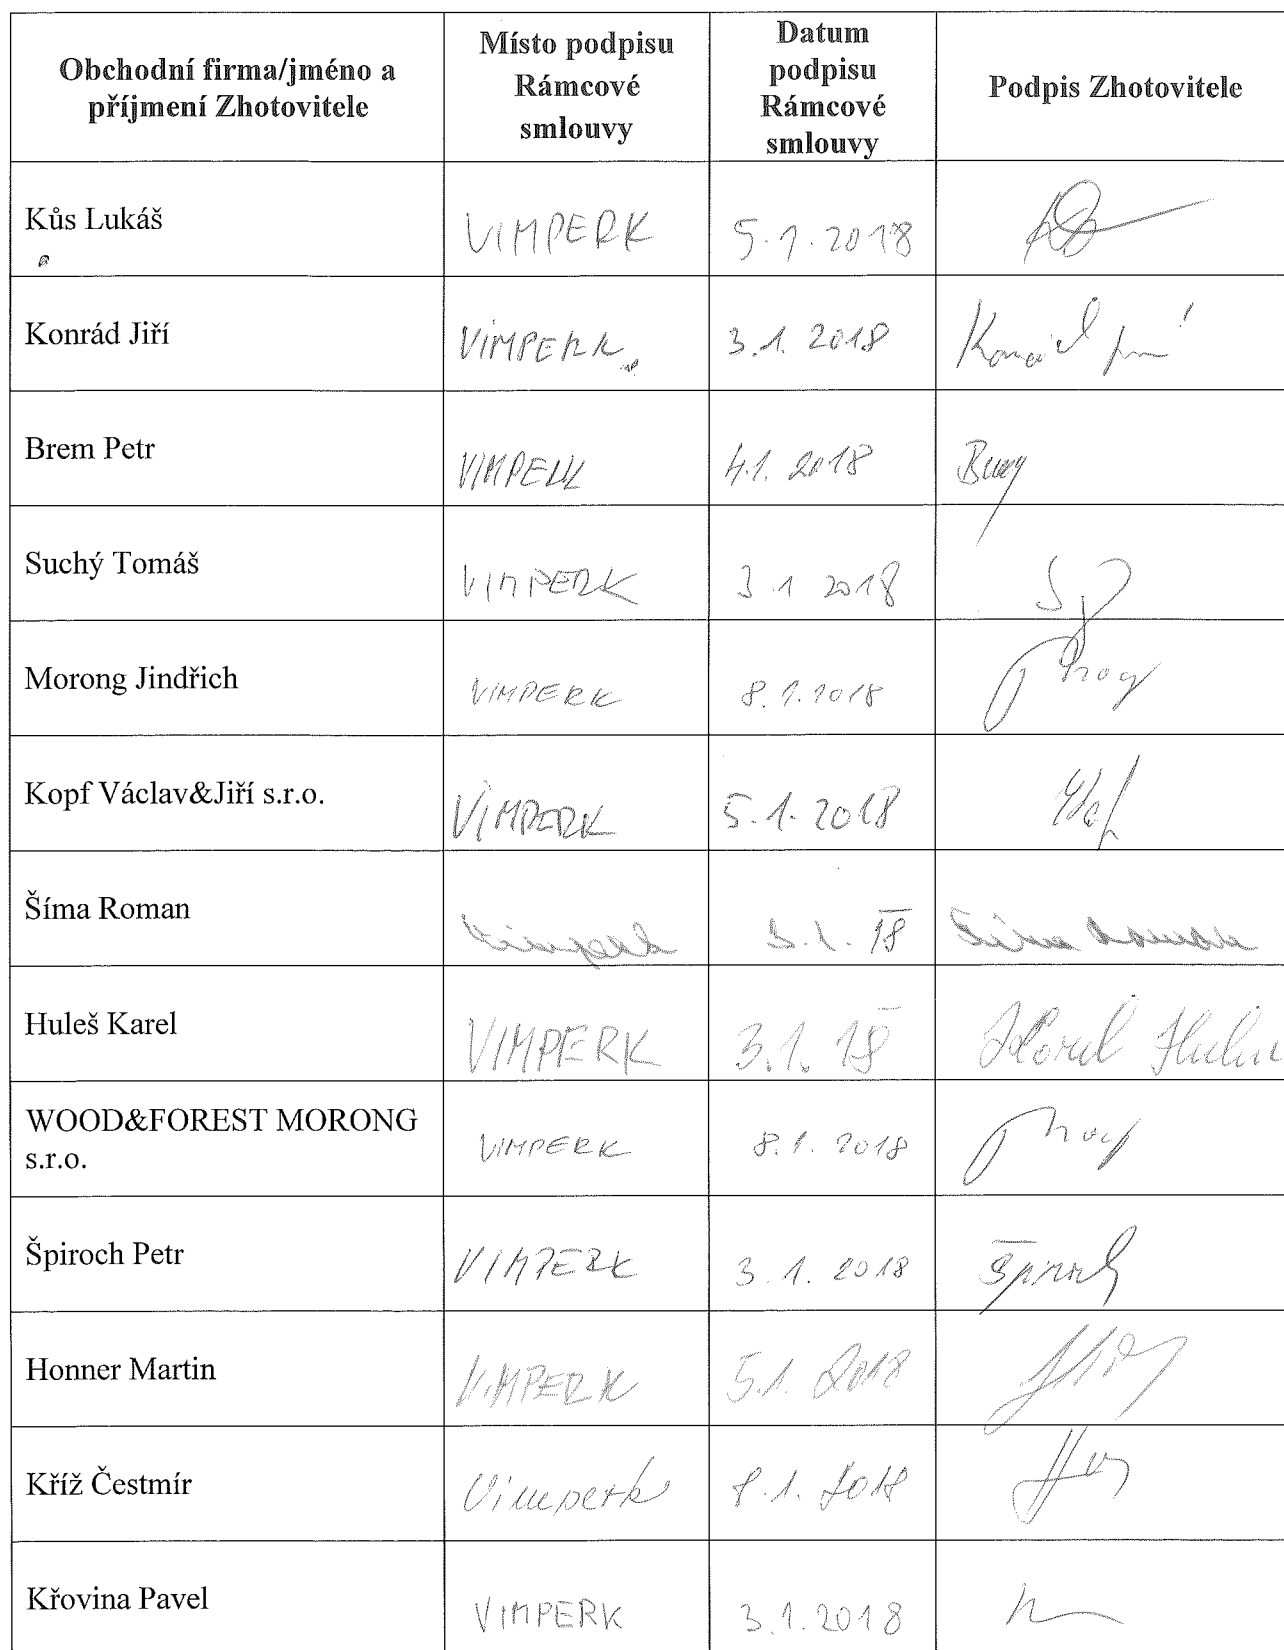 Obchodní firma/jméno a
příjmení Zhotovitele
Místo podpisu
Rámcové
smlouvy
Datum
podpisu
Rámcové
smlouvy
Podpis Zhotovitele
Kůs Lukáš VIMPERK 5.1.2018
Konrád Jiří VIMPERK 3.1.2018 Konrád
Brem Petr VIMPERK 4.1.2018
Suchý Tomáš VIMPERK 3.1 2018
Morong Jindřich VIMPERK 8.1.2018
Kopf Václav&Jiří s.r.o. VIMPERK 5.1.2018
Šíma Roman Vimperk 3.1.18 Šíma Roman
Huleš Karel VIMPERK 3.1.18 Karel Huleš
WOOD&FOREST MORONG
s.r.o. VIMPERK 8.1.2018
Špiroch Petr VIMPERK 3.1.2018 Špiroch
Honner Martin VIMPERK 5.1.2018
Kříž Čestmír Vimperk 8.1.2018
Křovina Pavel VIMPERK 3.1.2018